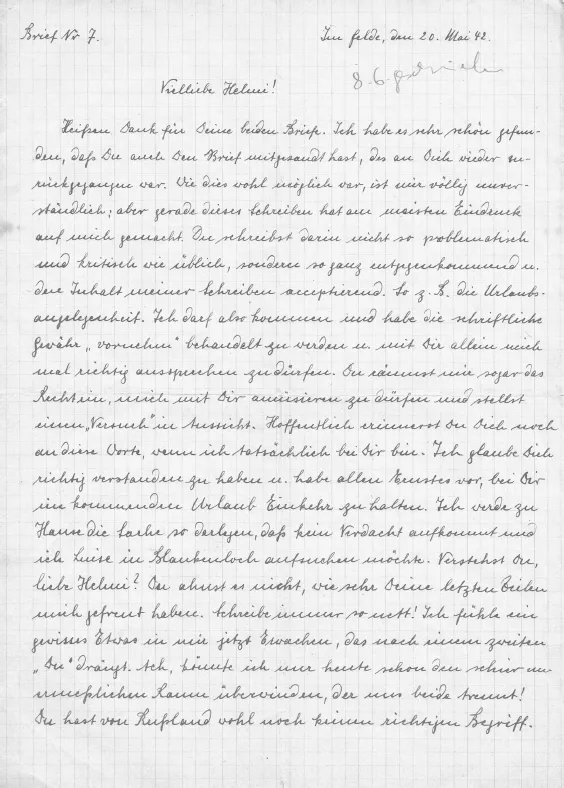 Brief Nr 7.
Im Felde, den 20. Mai 42.
8.6. geschrieben
Vielliebe Helmi!
Heißen Dank für Deine beiden Briefe. Ich habe es sehr schön gefun-
den, daß Du auch den Brief mitgesandt hast, des an Dich wieder zu-
rückgegangen war. Wie dies wohl möglich war, ist mir völlig unver-
ständlich; aber gerade dieses Schreiben hat am meisten Eindruck
auf mich gemacht. Du schreibst darin nicht so problematisch
und kritisch wie üblich, sondern so ganz entgegenkommend u.
den Inhalt meiner Schreiben acceptierend. So z. B. die Urlaubs-
angelegenheit. Ich darf also kommen und habe die schriftliche
Gewähr „vornehm" behandelt zu werden u. mit Dir allein mich
mal richtig aussprechen zu dürfen. Du räumst mir sogar das
Recht ein, mich mit Dir amüsieren zu dürfen und stellst
einen „Versuch" in Aussicht. Hoffentlich erinnerst Du Dich noch
an diese Worte, wenn ich tatsächlich bei Dir bin. Ich glaube Dich
richtig verstanden zu haben u. habe allen Ernstes vor, bei Dir
im kommenden Urlaub Einkehr zu halten. Ich werde zu
Hause die Sache so darlegen, daß kein Verdacht aufkommt und
ich Luise in Blankenloch aufsuchen möchte. Verstehst Du,
liebe Helmi? Du ahnst es nicht, wie sehr Deine letzten Zeilen
mich gefreut haben. Schreibe immer so nett! Ich fühle ein
gewisses Etwas in mir jetzt Erwachen, das nach einem zweiten
„Du" drängt. Ach, könnte ich nur heute schon den schier un-
ermeßlichen Raum überwinden, der uns beide trennt!
Du hast von Rußland wohl noch keinen richtigen Begriff.